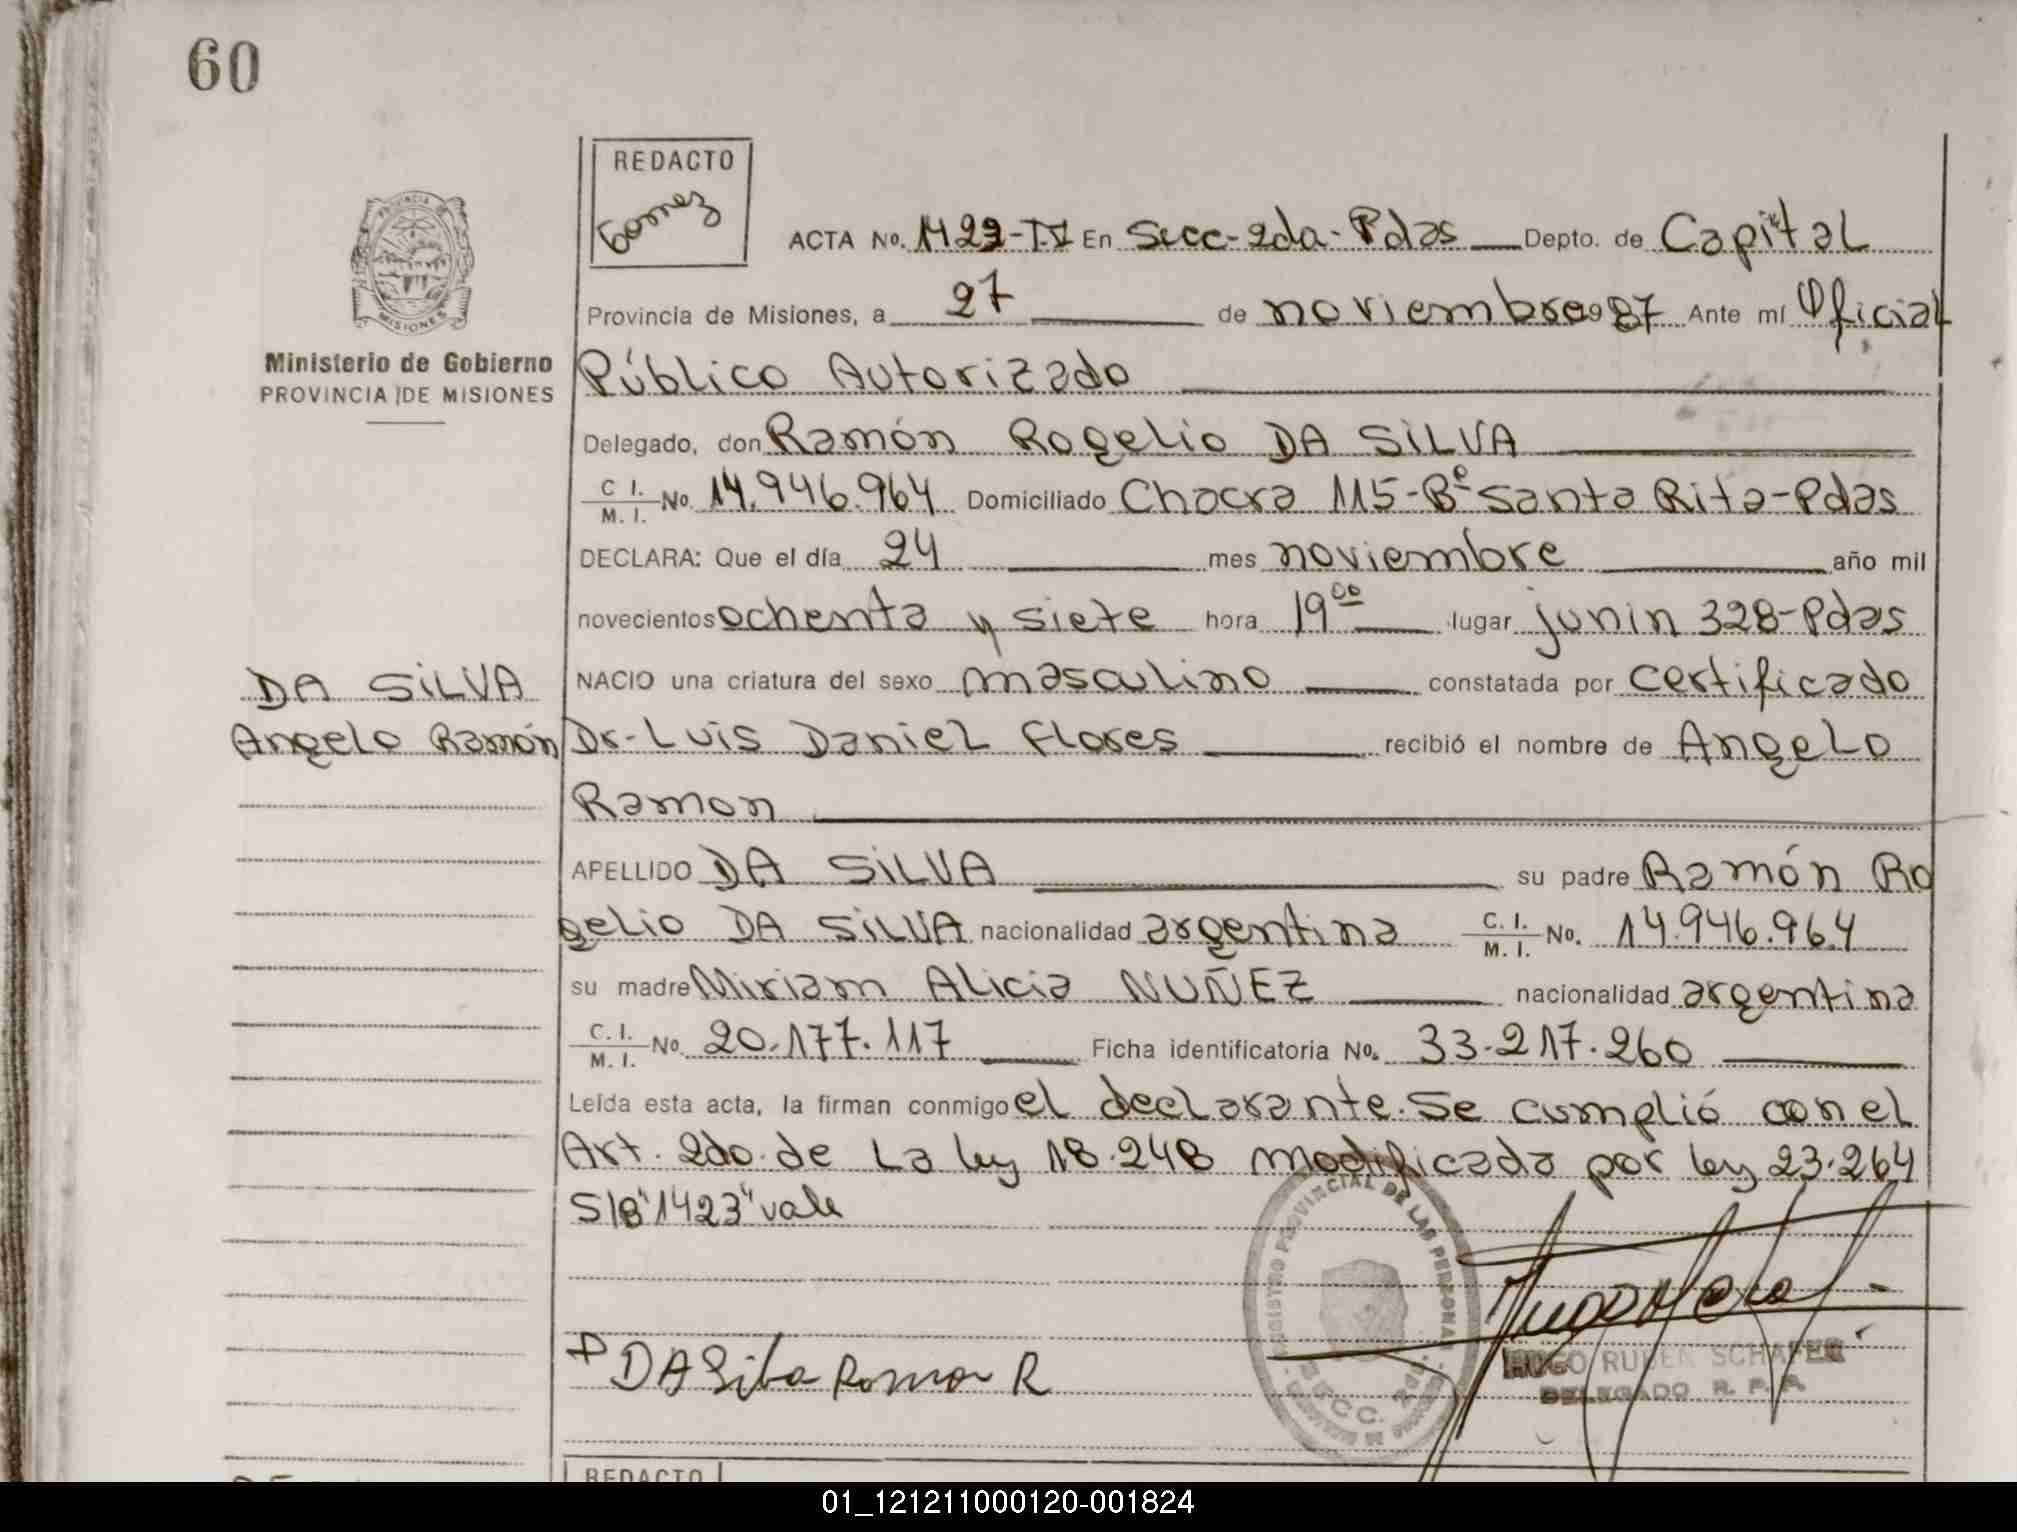 60
REDACTO
Gomez
ACTA No. 1423-T.I En Secc-2da-Pdas Depto. de Capital
Provincia de Misiones, a 27 de noviembre 987 Ante mí Oficial
Ministerio de Gobierno
PROVINCIA DE MISIONES
Público Autorizado
Delegado, don Ramón Rogelio DA SILVA
C I. M. I. No. 14.946.964 Domiciliado Chacra 115-Bº Santa Rita-Pdas
DECLARA: Que el día 24 mes noviembre año mil
novecientos ochenta y siete hora 19 00 lugar junin 328-Pdas
DA SILVA
NACIO una criatura del sexo masculino constatada por certificado
Angelo Ramón
Dr-Luis Daniel Flores recibió el nombre de Angelo
Ramon
APELLIDO DA SILVA su padre Ramón Ro
gelio DA SILVA nacionalidad argentina C. I. M. I. No. 14.946.964
su madre Miriam Alicia NUÑEZ nacionalidad argentina
C. I. M. I. No. 20.177.117 Ficha identificatoria No. 33.217.260
Leída esta acta, la firman conmigo el declarante. Se cumplió con el
Art. 2do. de La ley 18.248 modificada por ley 23.264
S/B "1423" vale
REGISTRO PROVINCIAL DE LAS PERSONAS
SECC. 2da.
DA Silva Ramon R
HUGO RUBEN SCHAFER
DELEGADO R. P. P.
REDACTO
01_121211000120-001824